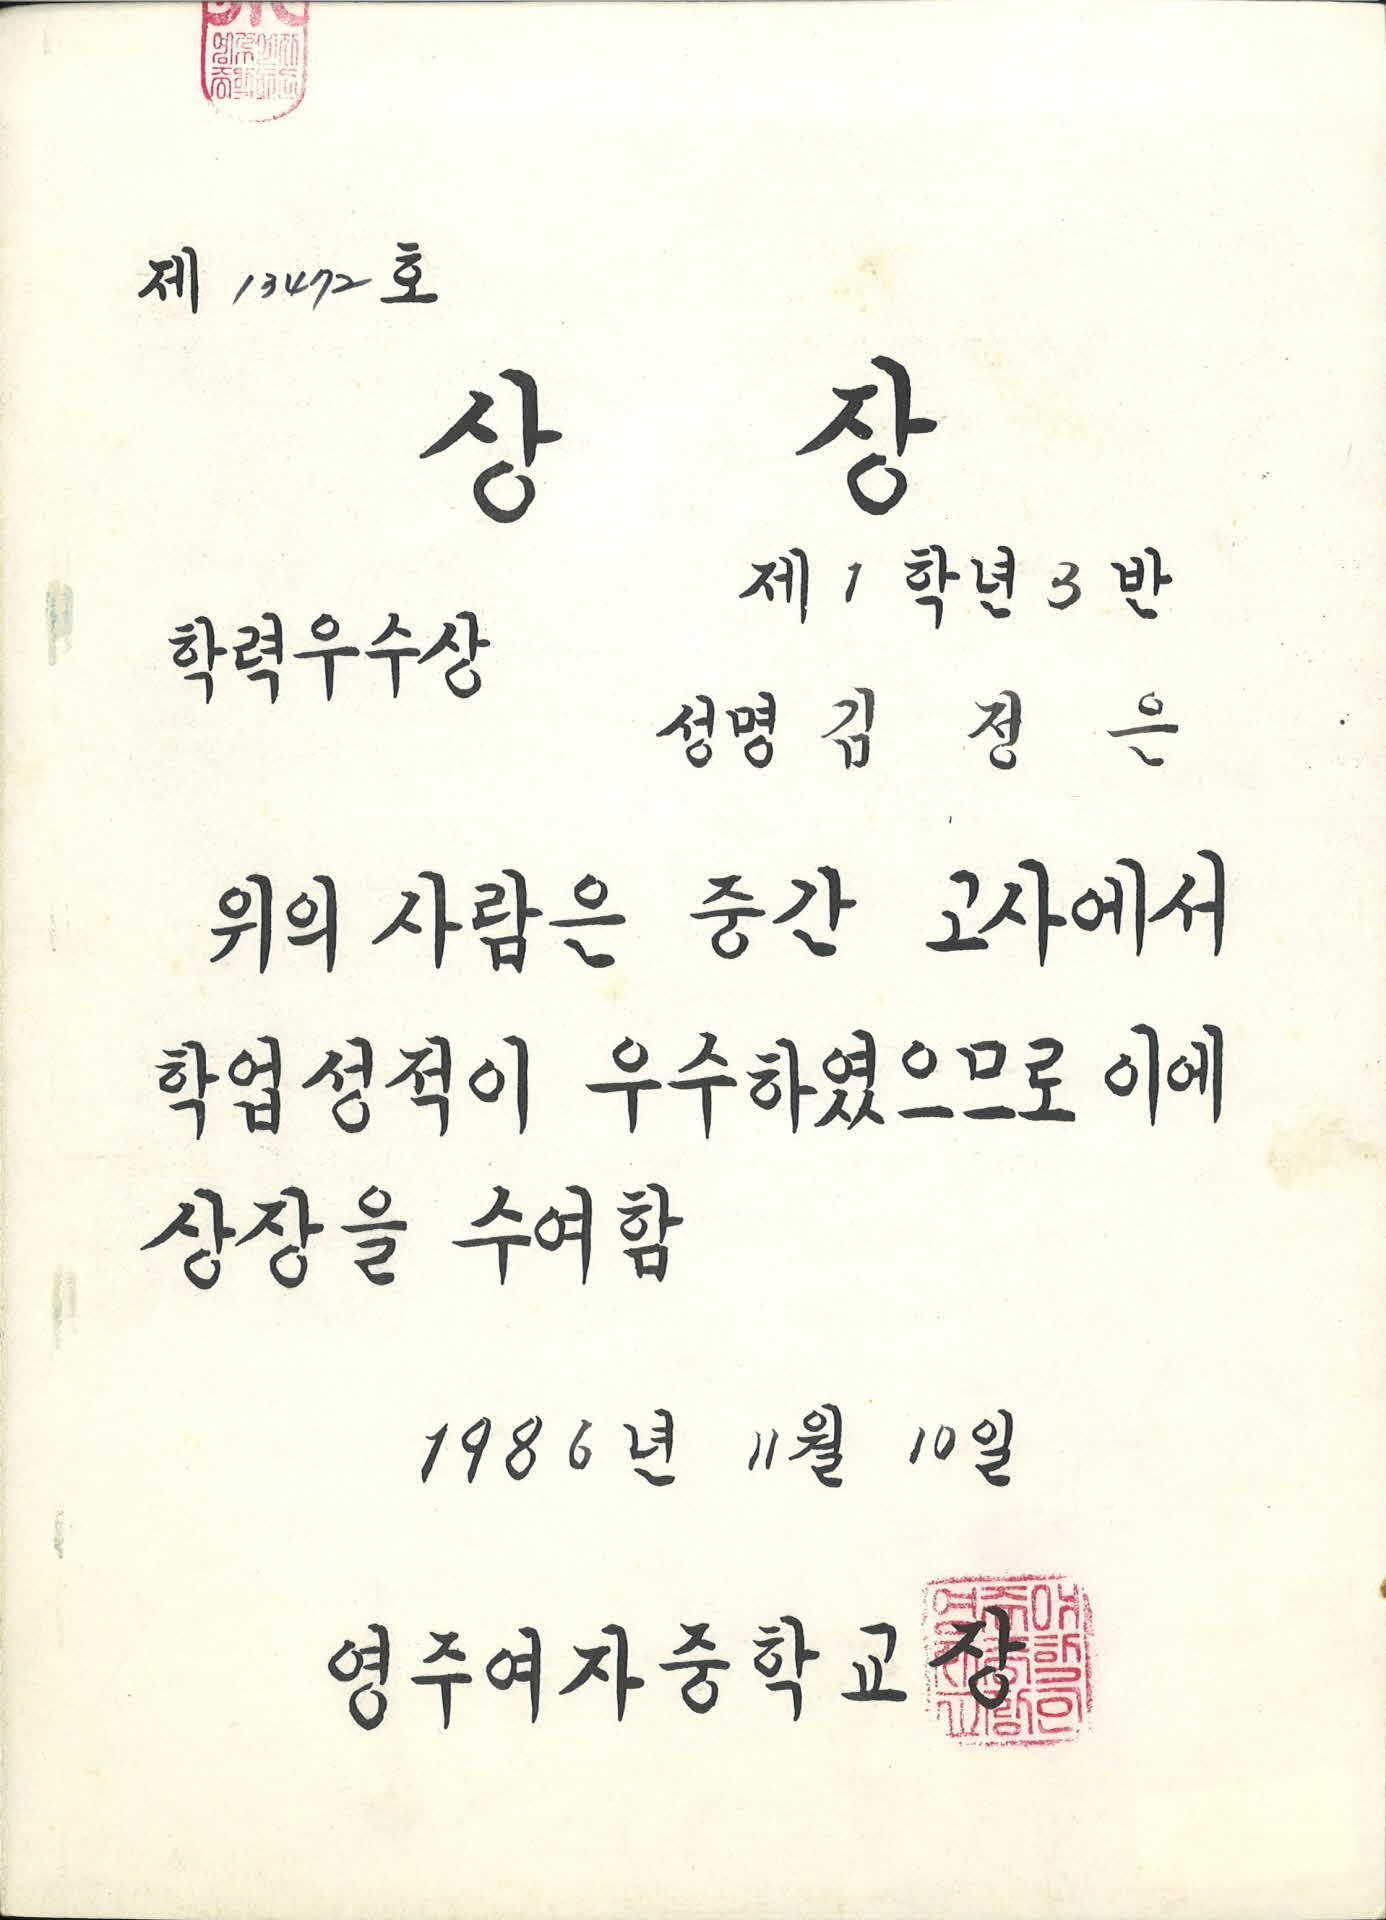 제 13472 호
상 장
제 1 학년 3 반
학력우수상
성명 김 정 은
위의 사람은 중간 고사에서
학업성적이 우수하였으므로 이에
상장을 수여함
1986년 11월 10일
영주여자중학교장